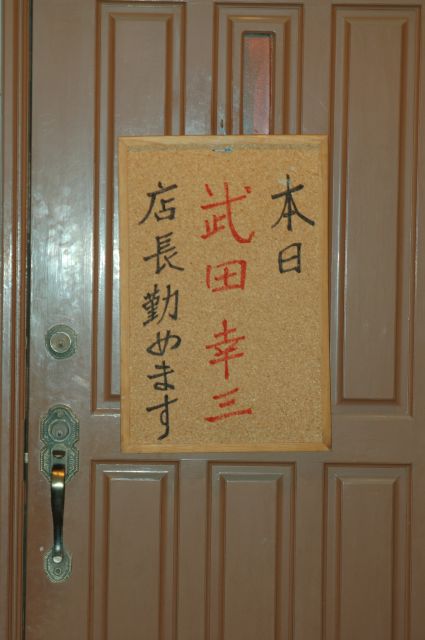 本日
武田幸三
店長勤めます